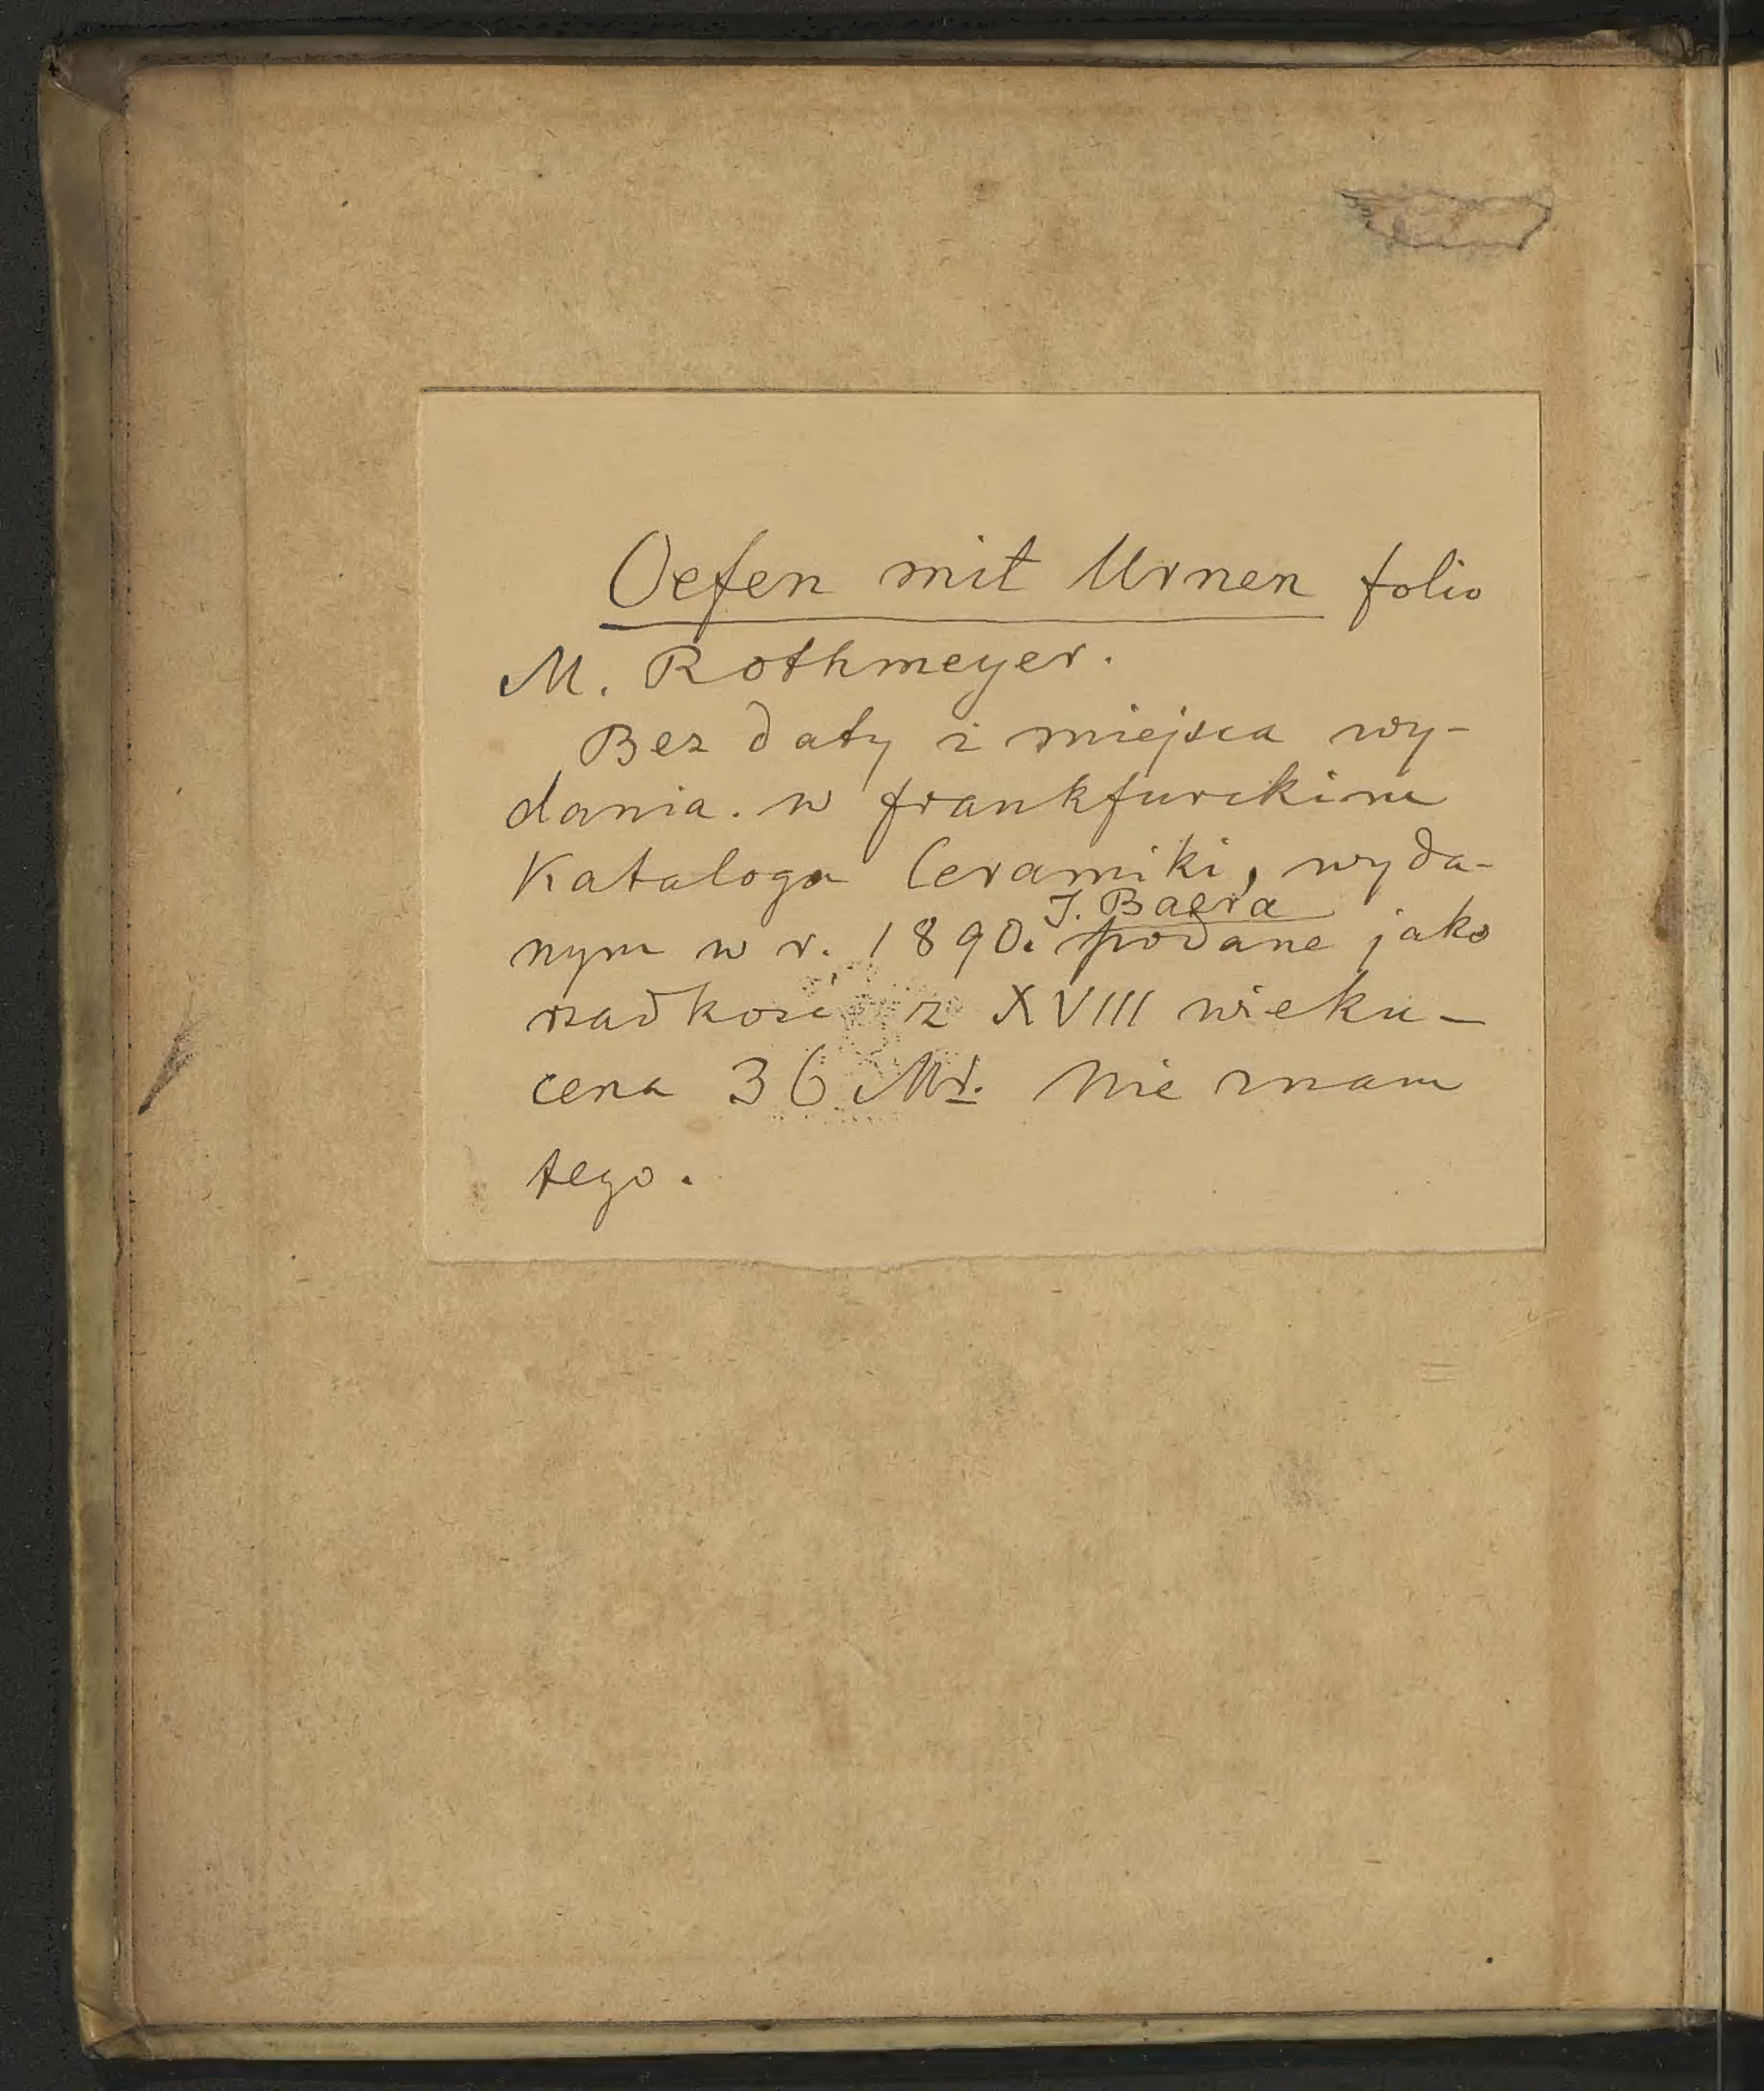 Oefen mit Urnen folio
M. Rothmeyer.
Bez daty i miejsca wy-
dania. w frankfurckim
Katalogu Ceramiki, wyda-
J. Baera
nym w r. 1890. podane jako
rzadkość z XVIII wieku -
cena 36 Mk. Nie znam
tego.